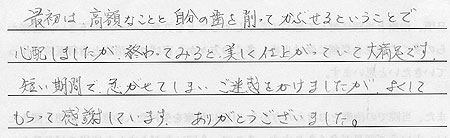 最初は、高額なことと自分の歯を削ってかぶせるということで
心配しましたが、終わってみると、美しく仕上がっていて大満足です。
短い期間で、急がせてしまい、ご迷惑をかけましたが、よくして
もらって感謝しています。ありがとうございました。